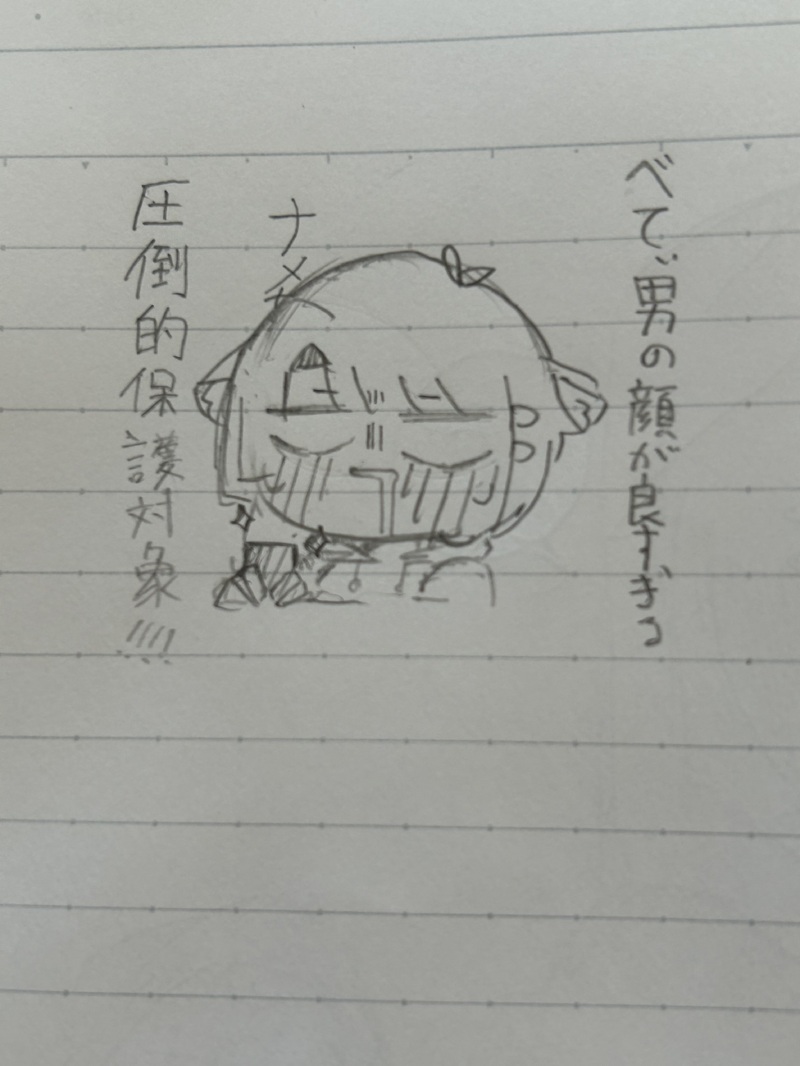 べて、、男の顔が良すぎる
ナメ
圧倒的保護対象!!!!